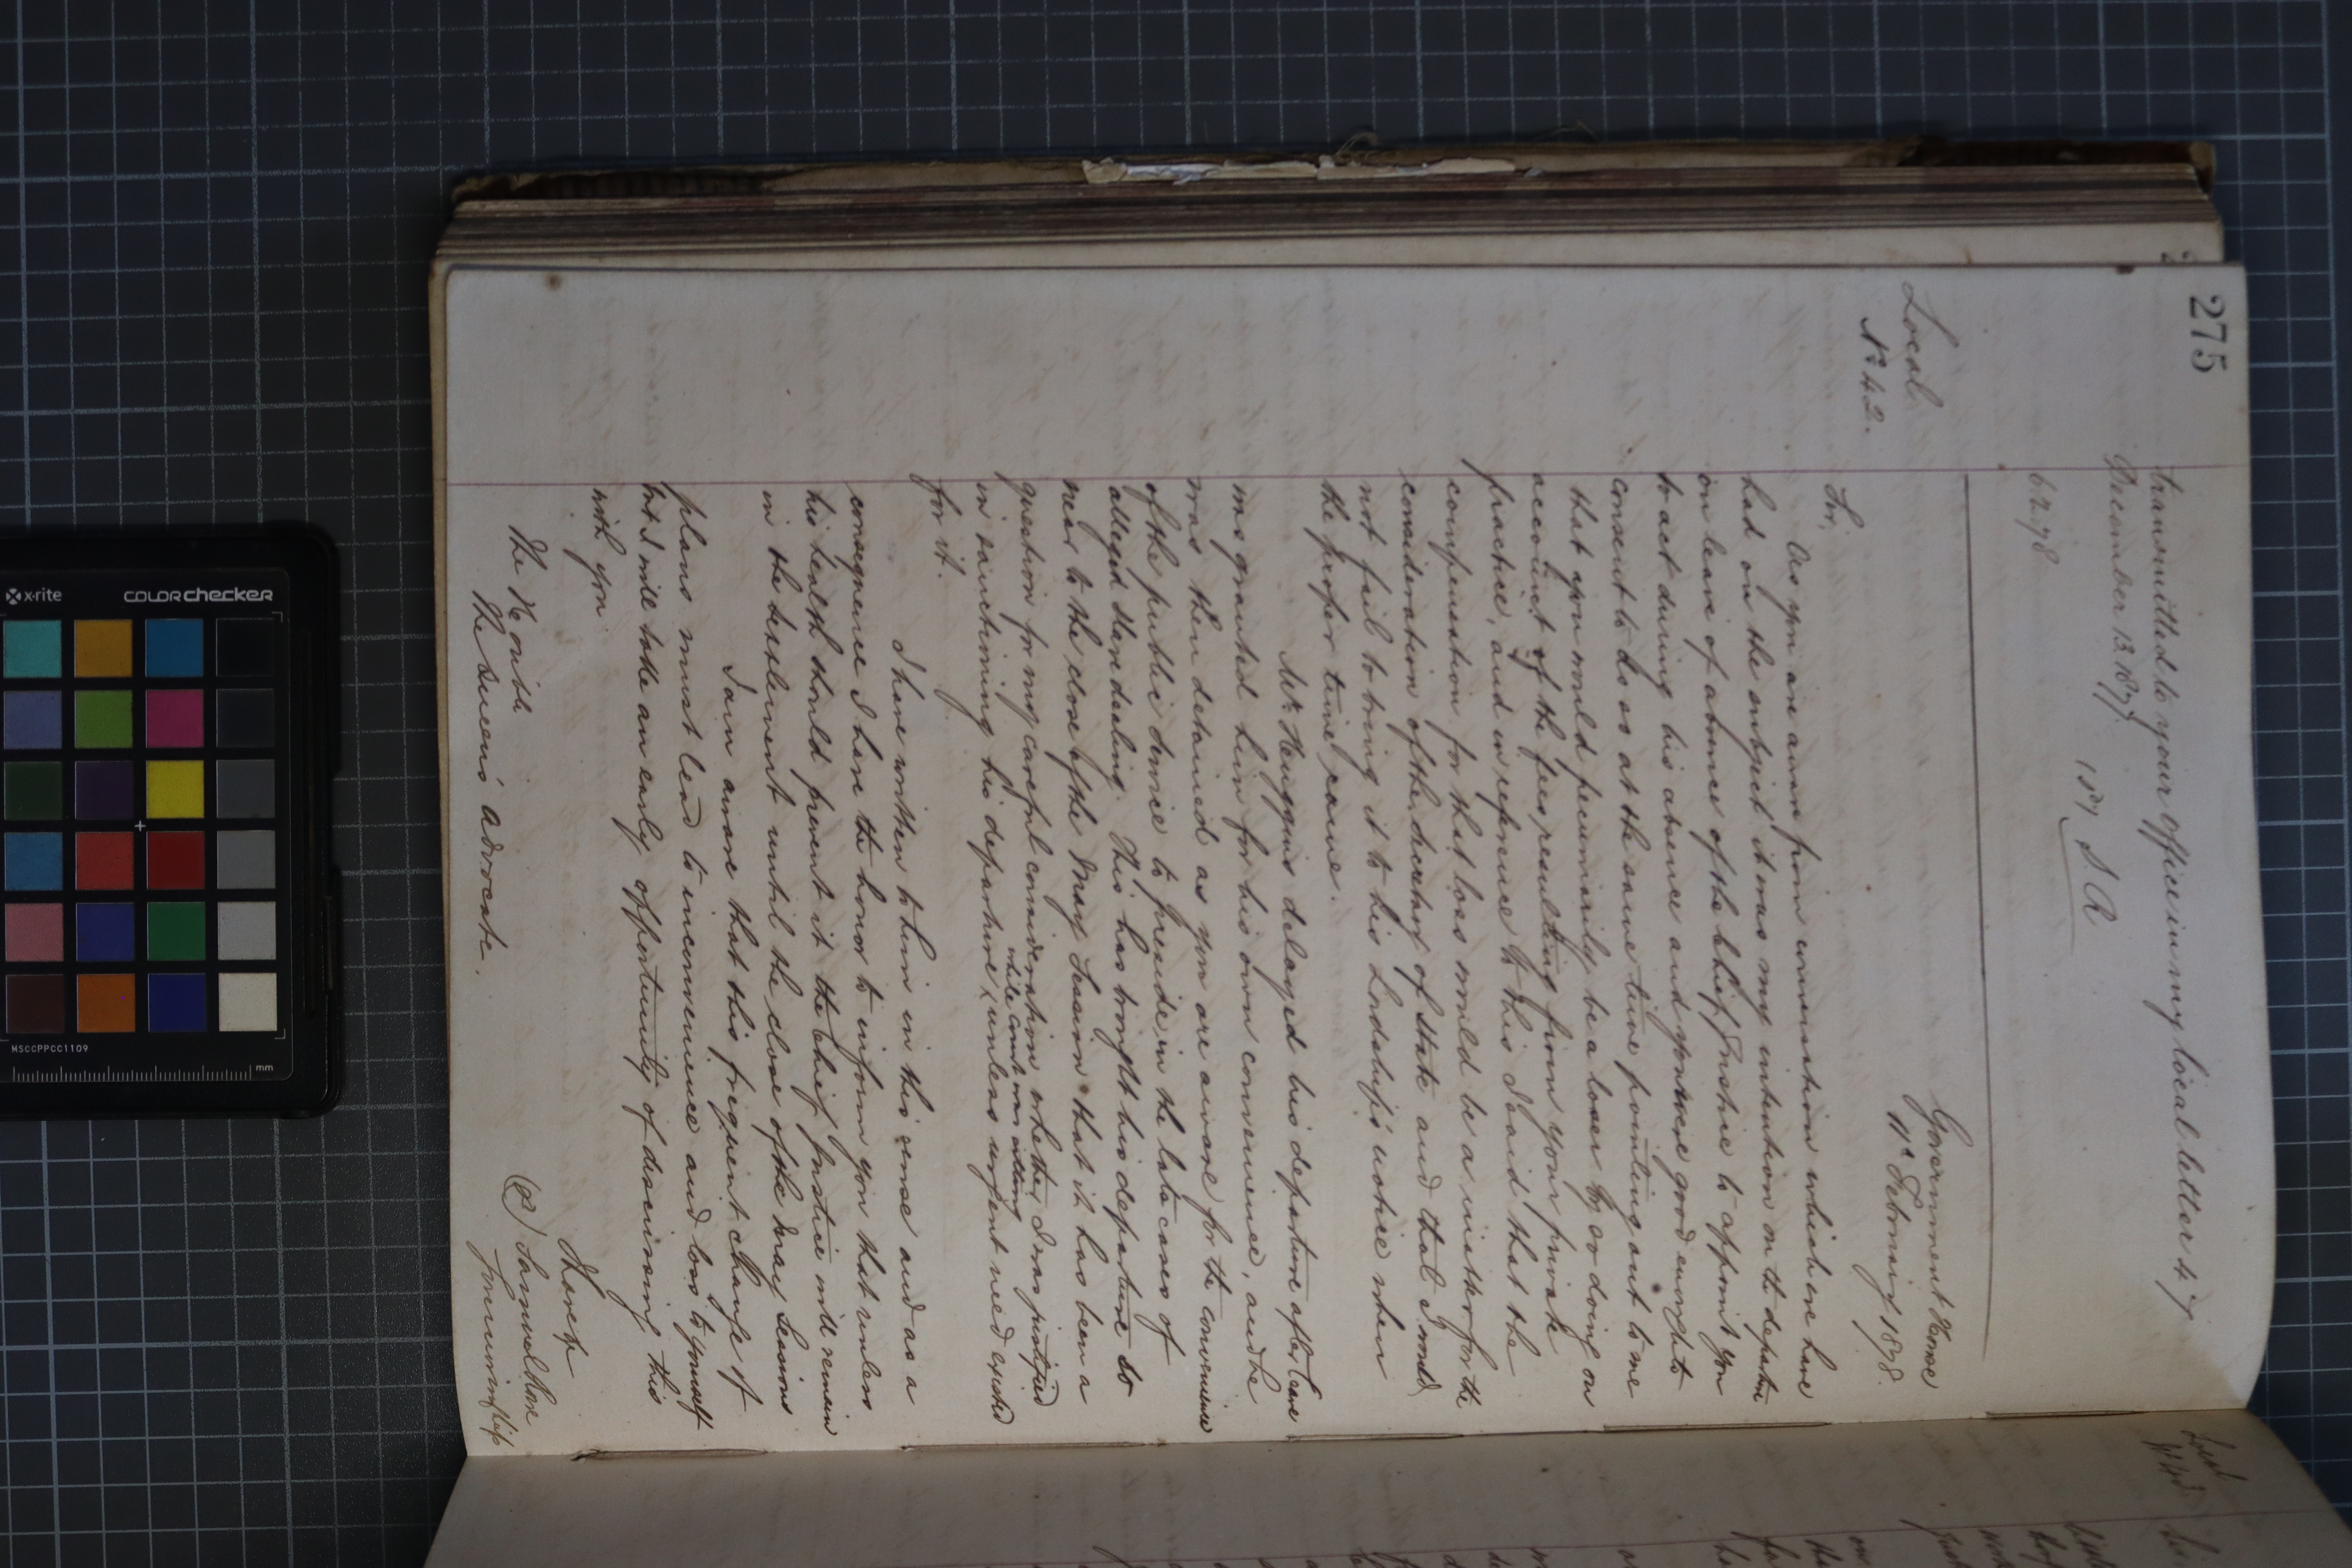 275
transmitted to your office in my local letter 47
December 13. 1877.
157 S A
6 2 78
Local
No 42.
Government House
11th February 1878.
Sir,
As you are aware from conversation which we have
had on the subject it was my intention on the departure
on leave of absence of the Chief Justice to appoint you
to act during his absence and you were good enough to
consent to do so at the same time pointing out to me
that you would pecuniarily be a loser by so doing on
account of the fees resulting from your private
practice, and in reference to this I said that the
compensation for that loss would be a matter for the
consideration of the Secretary of State and that I would
not fail to bring it to his Lordship's notice when
the proper time came.
Mr delayed his departure after leave
was granted him for his own convenience, and he
was then detained as you are aware for the convenience
of the public service to preside in the late cases of
alleged slave dealing. This has brought his departure so
near to the close of the May Session that it has been a
question for my careful consideration whether I was justified
while court was sitting
in sanctioning his departure x unless urgent need existed
for it.
I have written to him in this sense and as a
consequence I have the honor to inform you that unless
his health should prevent it the Chief Justice will remain
in the Settlement until the close of the May Sessions
I am aware that this frequent change of
plans must lead to inconvenience and loss to yourself
but I will take an early opportunity of discussing this
with you
I have &c
(s) Samuel Rowe
The Honble
The Queen's Advocate.